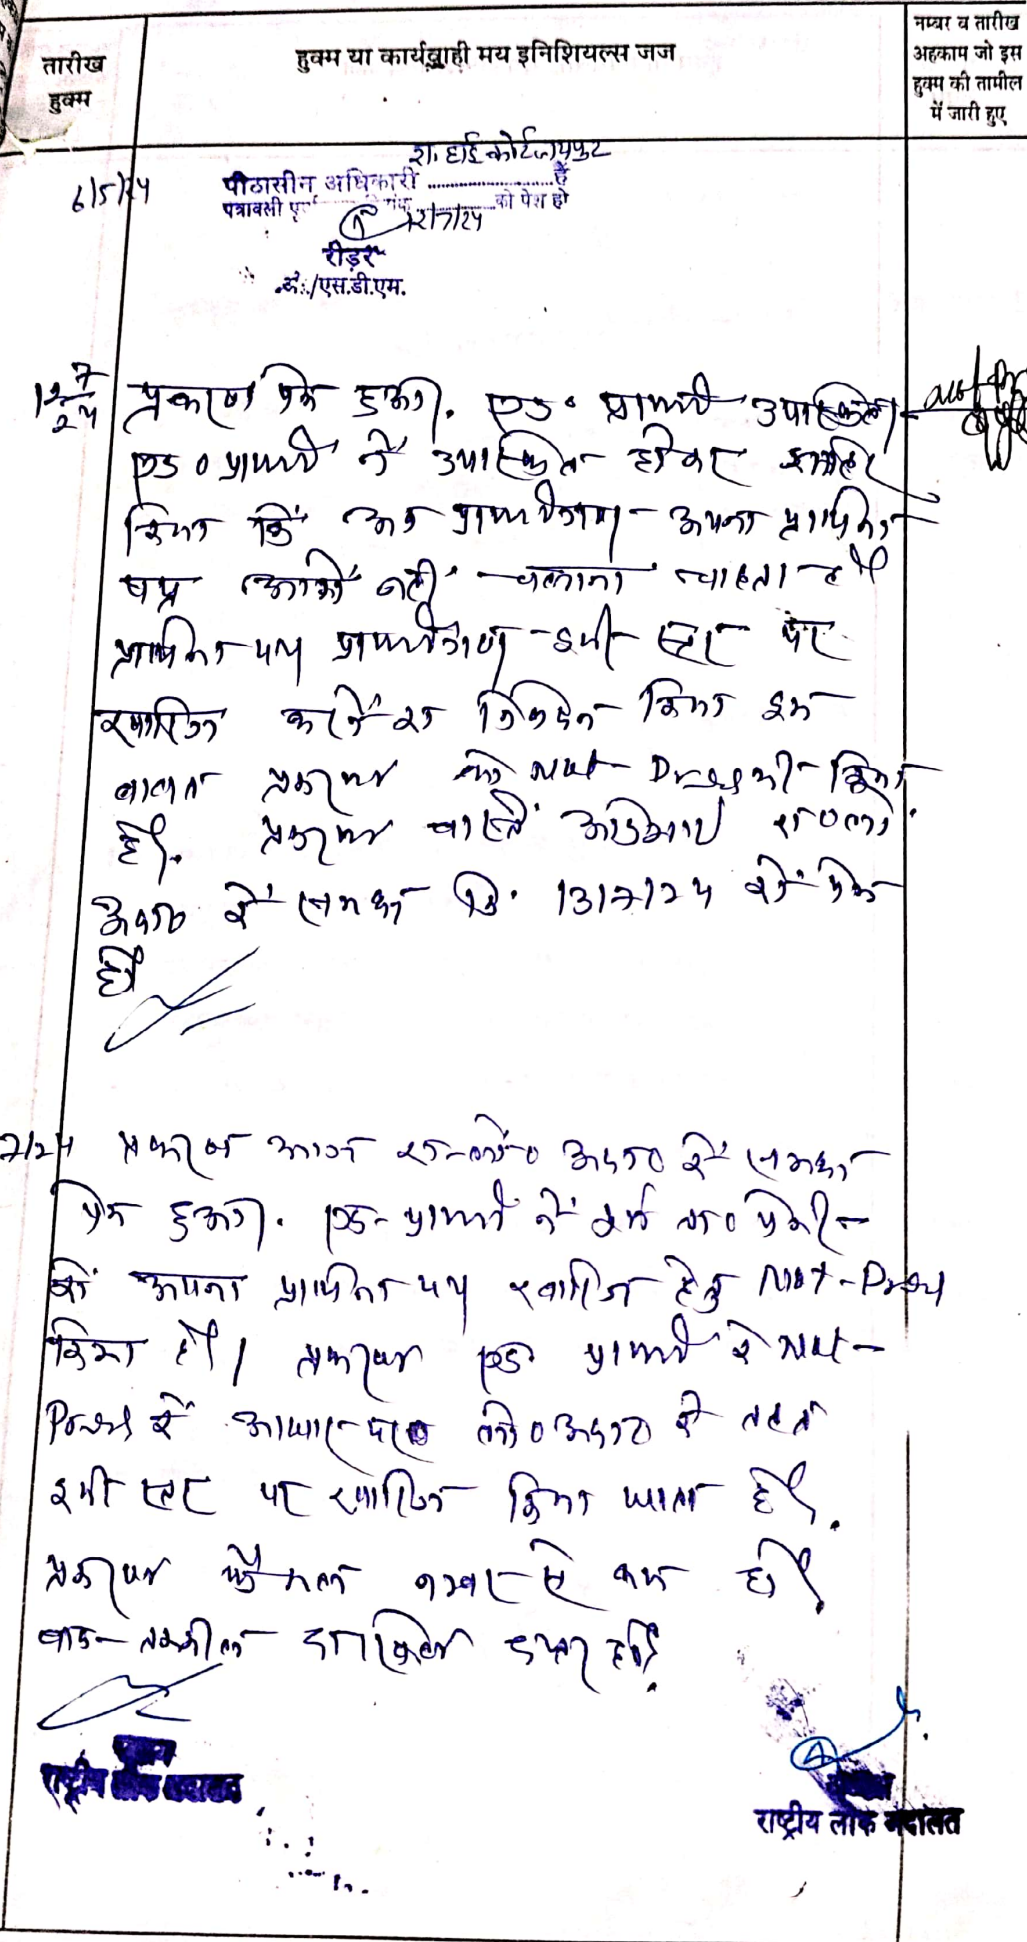 तारीख
हुक्म
हुक्म या कार्यवाही मय इनिशियल्स जज
नम्बर व तारीख
अहकाम जो इस
हुक्म की तामील
में जारी हुए
6/5/24
रा. हाई कोर्ट जयपुर
पीठासीन अधिकारी ........................ हैं
पत्रावली को पेश हो
12/7/24
रीडर
/एस.डी.एम.
12/7/24
प्रकरण पेश हुआ। एड० प्रार्थी उपस्थित।
एड० प्रार्थी ने उपस्थित होकर जाहिर
किया कि अब प्रार्थीगण अपना प्रार्थना
पत्र आगे नहीं चलाना चाहता है
प्रार्थना पत्र प्रार्थीगण इसी स्तर पर
खारिज करने का निवेदन किया इस
बाबत प्रकरण को Not Press भी किया
है। प्रकरण वास्ते
के समक्ष दि. 13/7/24 को पेश
हो
7/24
प्रकरण आज के समक्ष
पेश हुआ। एड. प्रार्थी ने पूर्व
को अपना प्रार्थना पत्र खारिज हेतु Not-Press
किया है। प्रकरण एड. प्रार्थी के Not-
Press के आधार पर लोक अदालत के तहत
इसी स्तर पर खारिज किया जाता है।
प्रकरण फैसल नम्बर से कम हो।
बाद तकमील दाखिल दफ्तर हो।
राष्ट्रीय लोक अदालत
राष्ट्रीय लोक अदालत